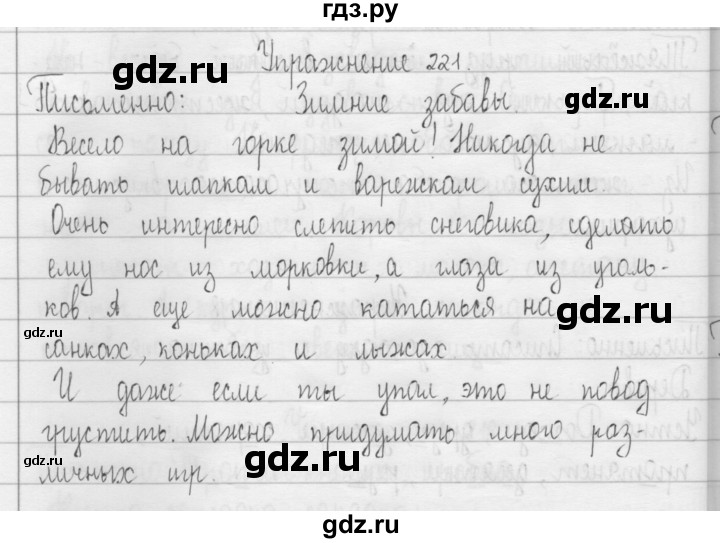 гдз.ру
Упражнение 221
gdz.ru gdz.ru
Письменно: Зимние забавы.
Весело на горке зимой! Никогда не
бывать шапкам и варежкам сухим
Очень интересно слепить снеговика, сделать
ему нос из морковки, а глаза из уголь-
ков А еще можно кататься на
gdz.ru gdz.ru
санках, коньках и лыжах
И даже если ты упал, это не повод
грустить. Можно придумать много раз
личных игр.
gdz.ru gdz.ru
gdz.ru